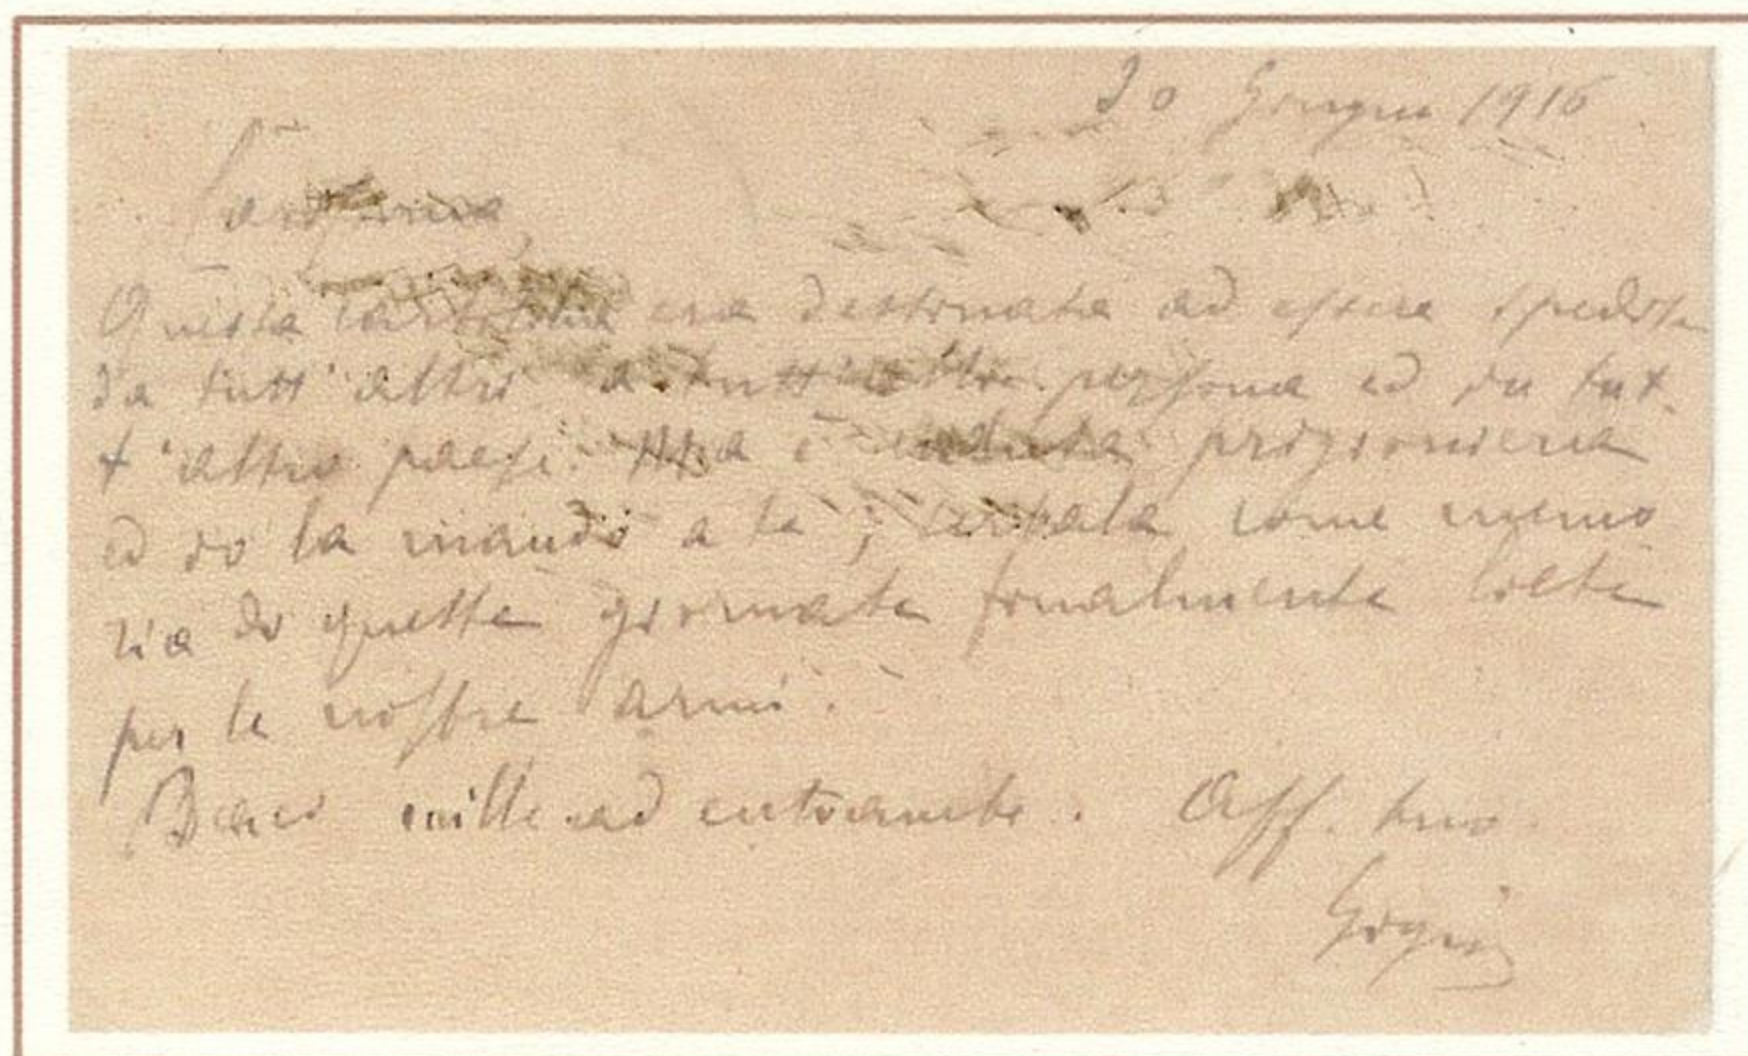 20 Giugno 1916
Carissima,
Questa cartolina era destinata ad essere spedita
da tutt'altri a tutt'altra persona ed in tut-
t'altro paese. Ma è caduta prigioniera
ed io la mando a te; serbala come memo
ria di queste giornate finalmente liete
per le nostre armi.
Baci mille ad entrambe. Aff. tuo